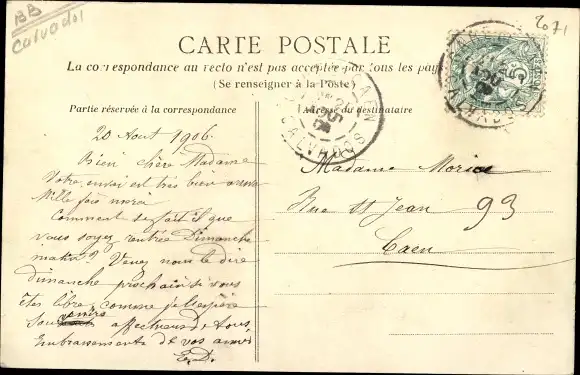 BB
Calvados
2071
CARTE POSTALE
La correspondance au recto n'est pas acceptée par tous les pays
(Se renseigner à la Poste)
Partie réservée à la correspondance
Adresse du destinataire
CAEN
CALVADOS
20 Aout 1906.
Bien chère Madame
Votre envoi est très bien arrivé
Mille fois merci
Comment se fait il que
vous soyez rentrée Dimanche
matin? Venez nous le dire
dimanche prochain si vous
êtes libre, comme je l'espère
affectueux de tous
Embrassements de vos amis
E.D.
Madame Morice
Rue St Jean 93
Caen